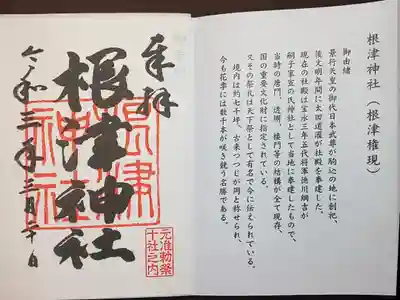 根津神社（根津権現）
御由緒
景行天皇の御代日本武尊が駒込の地に創祀、
後文明年間に太田道灌が社殿を奉建した。
現在の社殿は宝永三年五代将軍徳川綱吉が
嗣子家宣の氏神社として当地に奉建したもので、
当時の唐門、透塀、楼門等の結構が全て現存、
国の重要文化財に指定されている。
又その祭礼は天下祭として有名で今に伝えられている。
境内は約七千坪、古来つつじが岡と称せられ、
今も花季には数千本が咲き競う名勝である。
奉拝
根津神社
令和三年三月二十日
根津神社
元准勅祭
十社之内